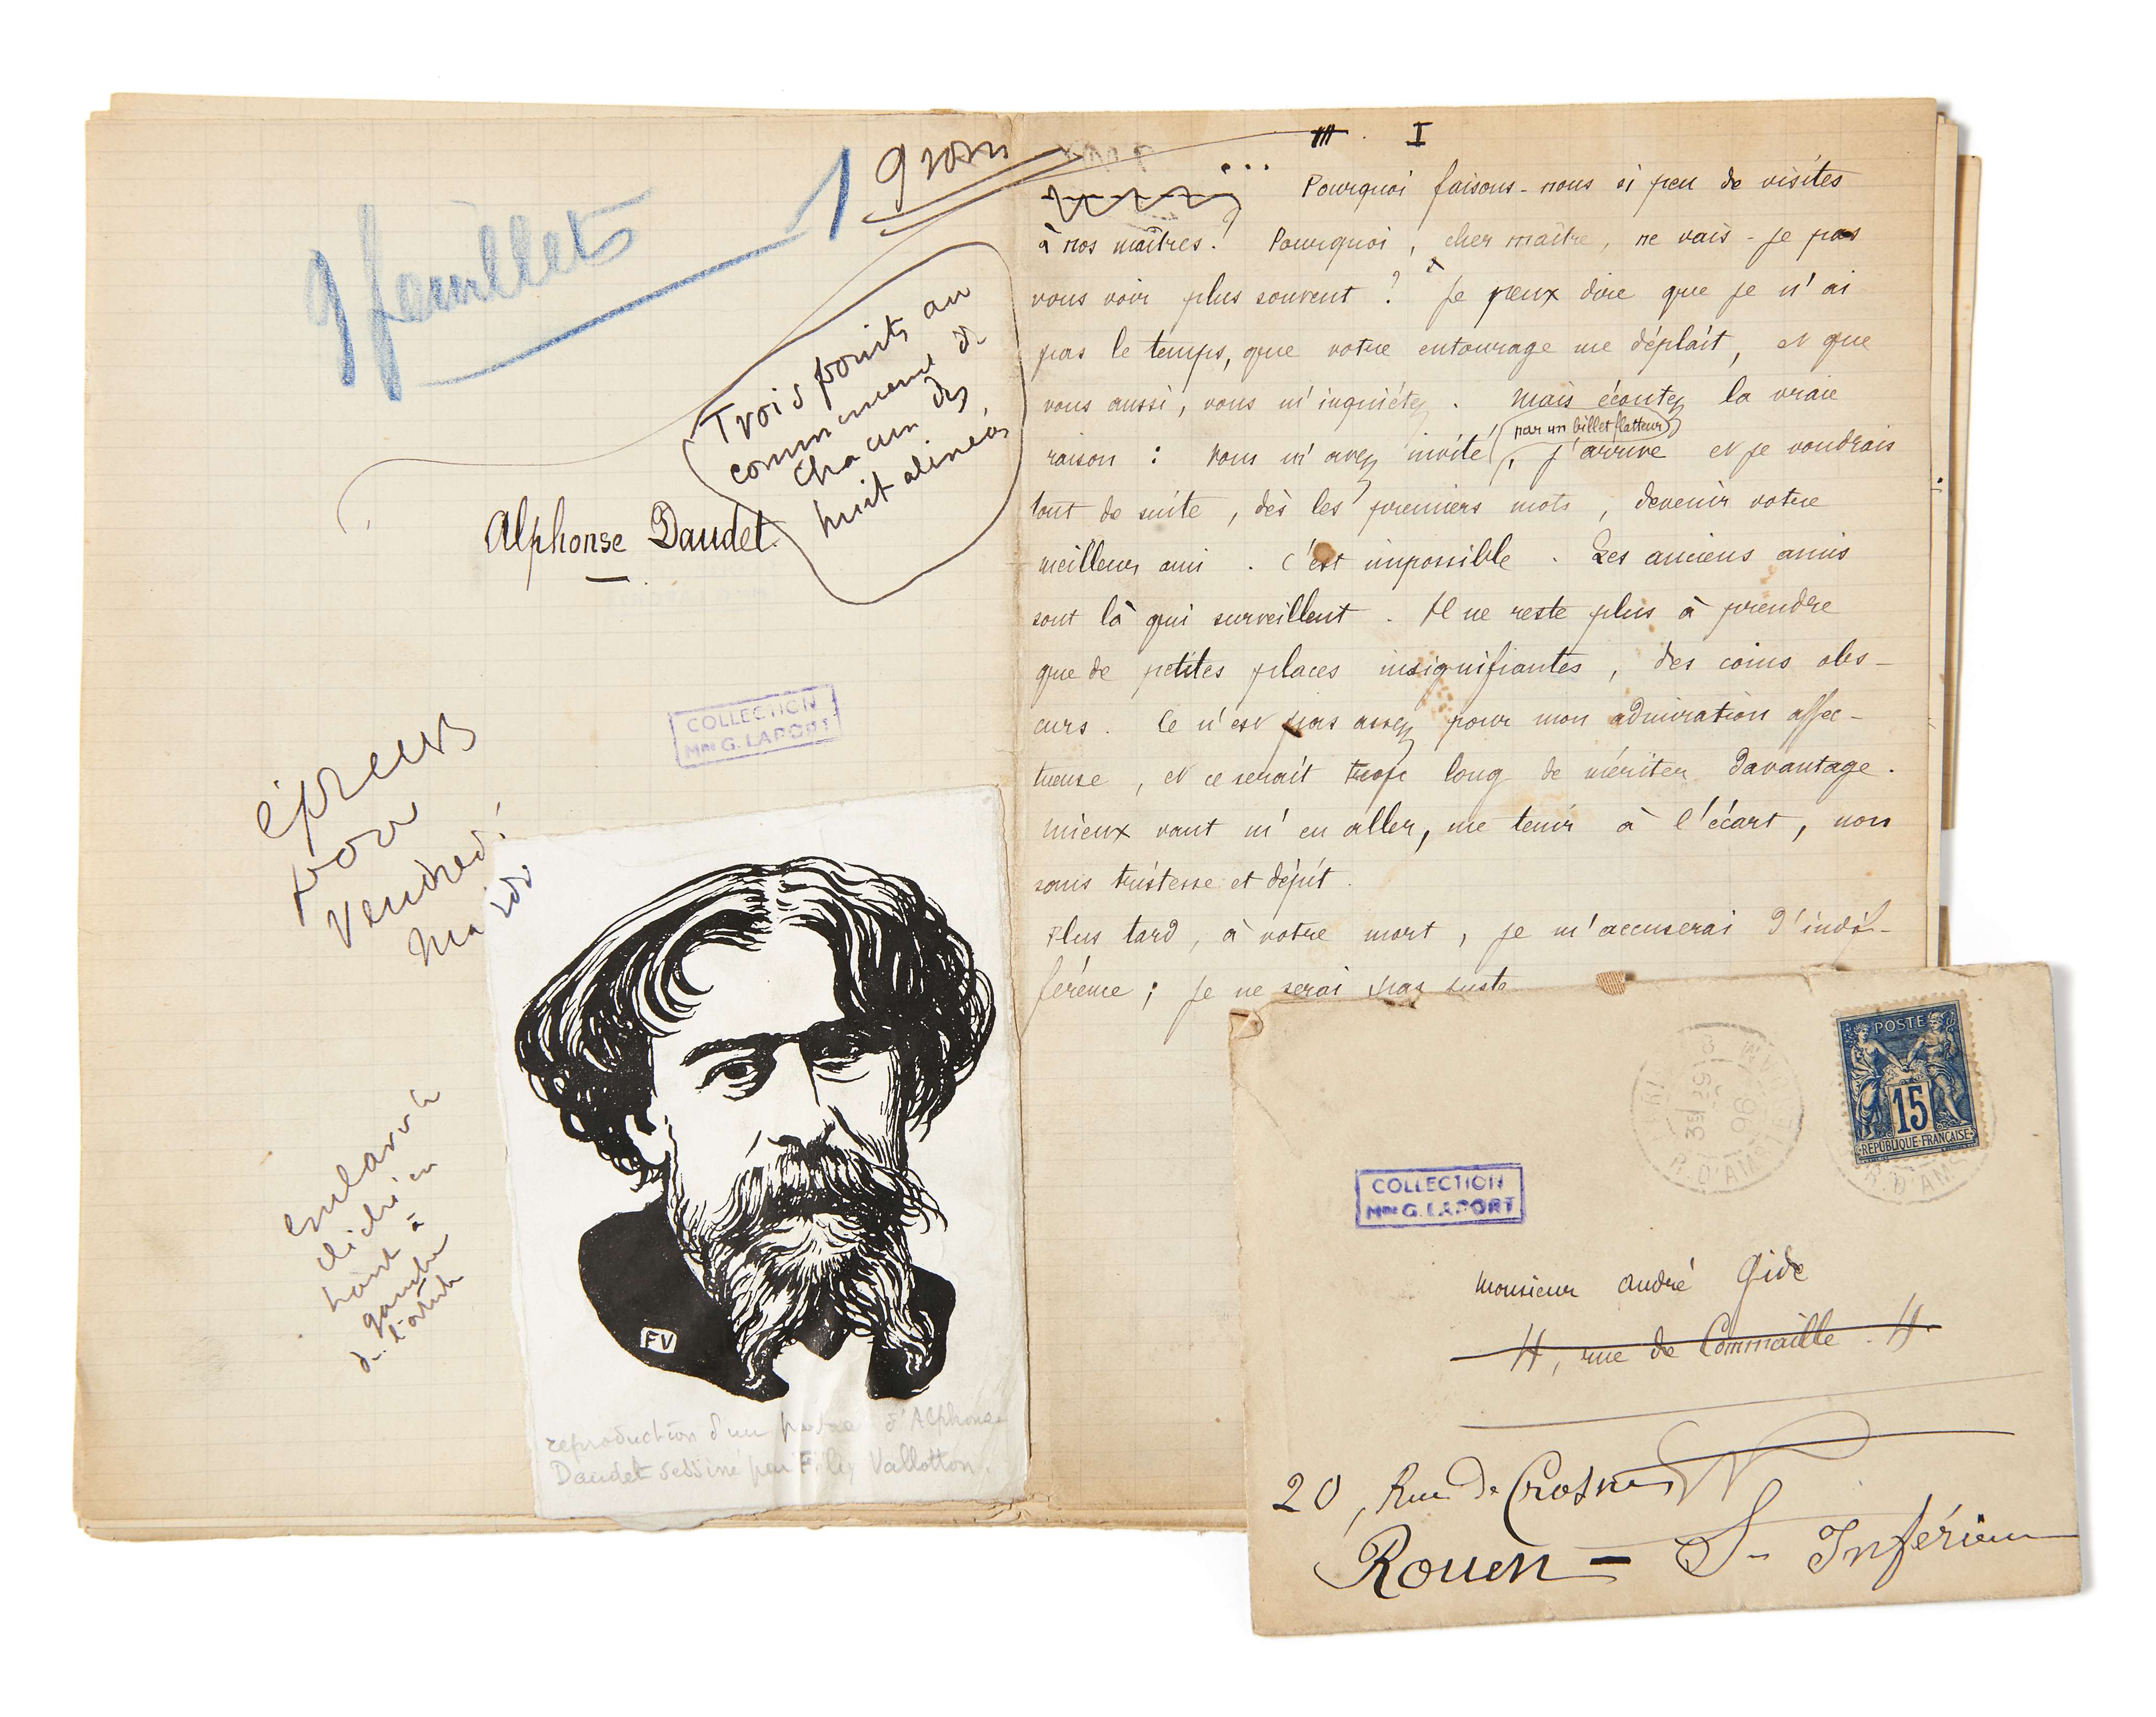 9 feuillets
1 9 rom
Trois points au
commencement de
chacun des
huit alinéas
Alphonse Daudet.
COLLECTION
Mme G. LAPORT
épreuves
pour
vendredi
midi
cliché en
haut à
gauche
de l'article
FV
reproduction d'un d'Alphonse
Daudet dessiné par Félix Vallotton.
I
... Pourquoi faisons-nous si peu de visites
à nos maîtres? Pourquoi, cher maître, ne vais-je pas
vous voir plus souvent ? Je peux dire que je n'ai
pas le temps, que votre entourage me déplaît, et que
vous aussi, vous m'inquiétez. Mais écoutez la vraie
par un billet flatteur
raison : Vous m'avez invité, j'arrive et je voudrais
tout de suite, dès les premiers mots, devenir votre
meilleur ami. C'est impossible. Les anciens amis
sont là qui surveillent. Il ne reste plus à prendre
que de petites places insignifiantes, des coins obs-
curs. Ce n'est pas assez pour mon admiration affec-
tueuse, et ce serait trop long de mériter davantage.
Mieux vaut m'en aller, me tenir à l'écart, non
sans tristesse et dépit.
Plus tard, à votre mort, je m'accuserai d'indif-
férence; je ne serai pas juste
POSTE
15
REPUBLIQUE FRANÇAISE
R. D'AMST
96
R. D'AMS
COLLECTION
Mme G. LAPORT
Monsieur André Gide
4, rue de Commaille. 4.
20, Rue de Crosne
Rouen = S. Inférieure